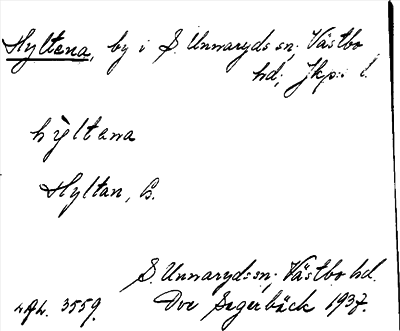 Hyltena, by i S. Unnaryds sn; Västbo
hd; Jkp:s l.
hỳltena
Hyltan, B.
S. Unnaryds sn; Västbo hd.
498. 3559. Ove Segerbäck 1937.